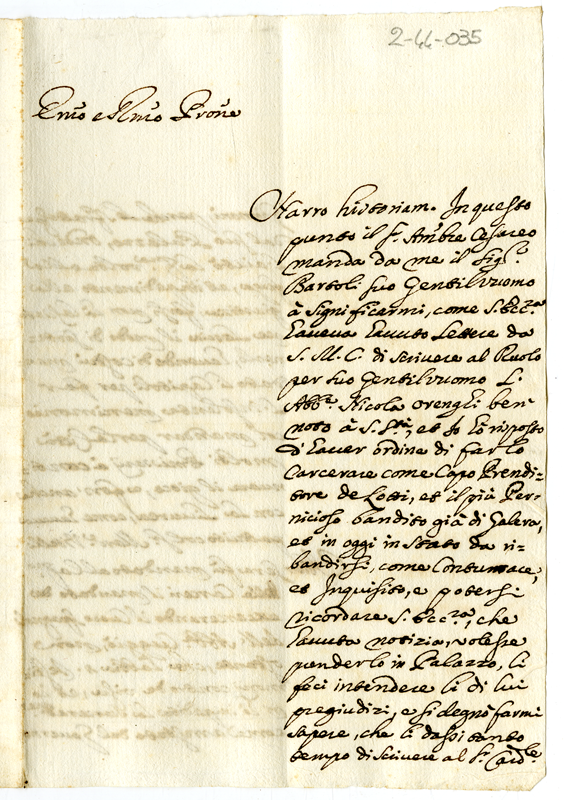 2-44-035
Em̃o e Rm̃o Prõne
Narro historiam. In questo
punto il Sr. Amb.re Cesareo
manda da me il Sig.r
Bartoli suo Gentilhuomo
à significarmi, come S. Ecc.za
haveva havuto Lettere da
S. M. C. di scrivere al Ruolo
per suo Gentilhuomo L'
Abb.e Nicola Orenghi ben
noto à S. S.tà, et Io hò risposto
di haver ordine di farlo
Carcerare come Capo Prendi=
tore de Lotti, et il più Per=
nicioso bandito già di Galera,
et in oggi in stato da ri=
bandirsi, come Contumace,
et Inquisito, e potersi
ricordare S. Ecc.za, che
havuta notizia, volesse
prenderlo in Palazzo, li
feci intendere li di lui
pregiudizi, e si degnò farmi
sapere, che li dassi tanto
tempo di scrivere al Sr. Card.le